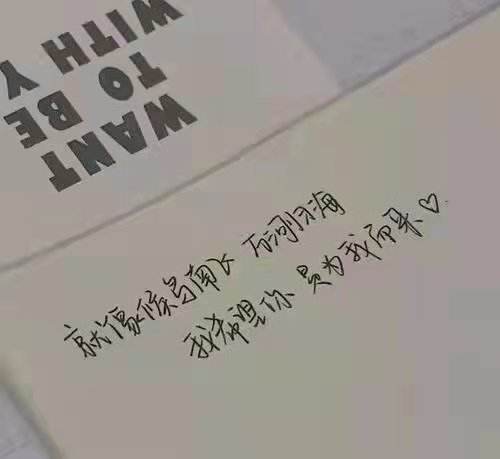 WANT
TO BE
WITH Y
就像候鸟南飞 百川归海
我希望你 是为我而来♡